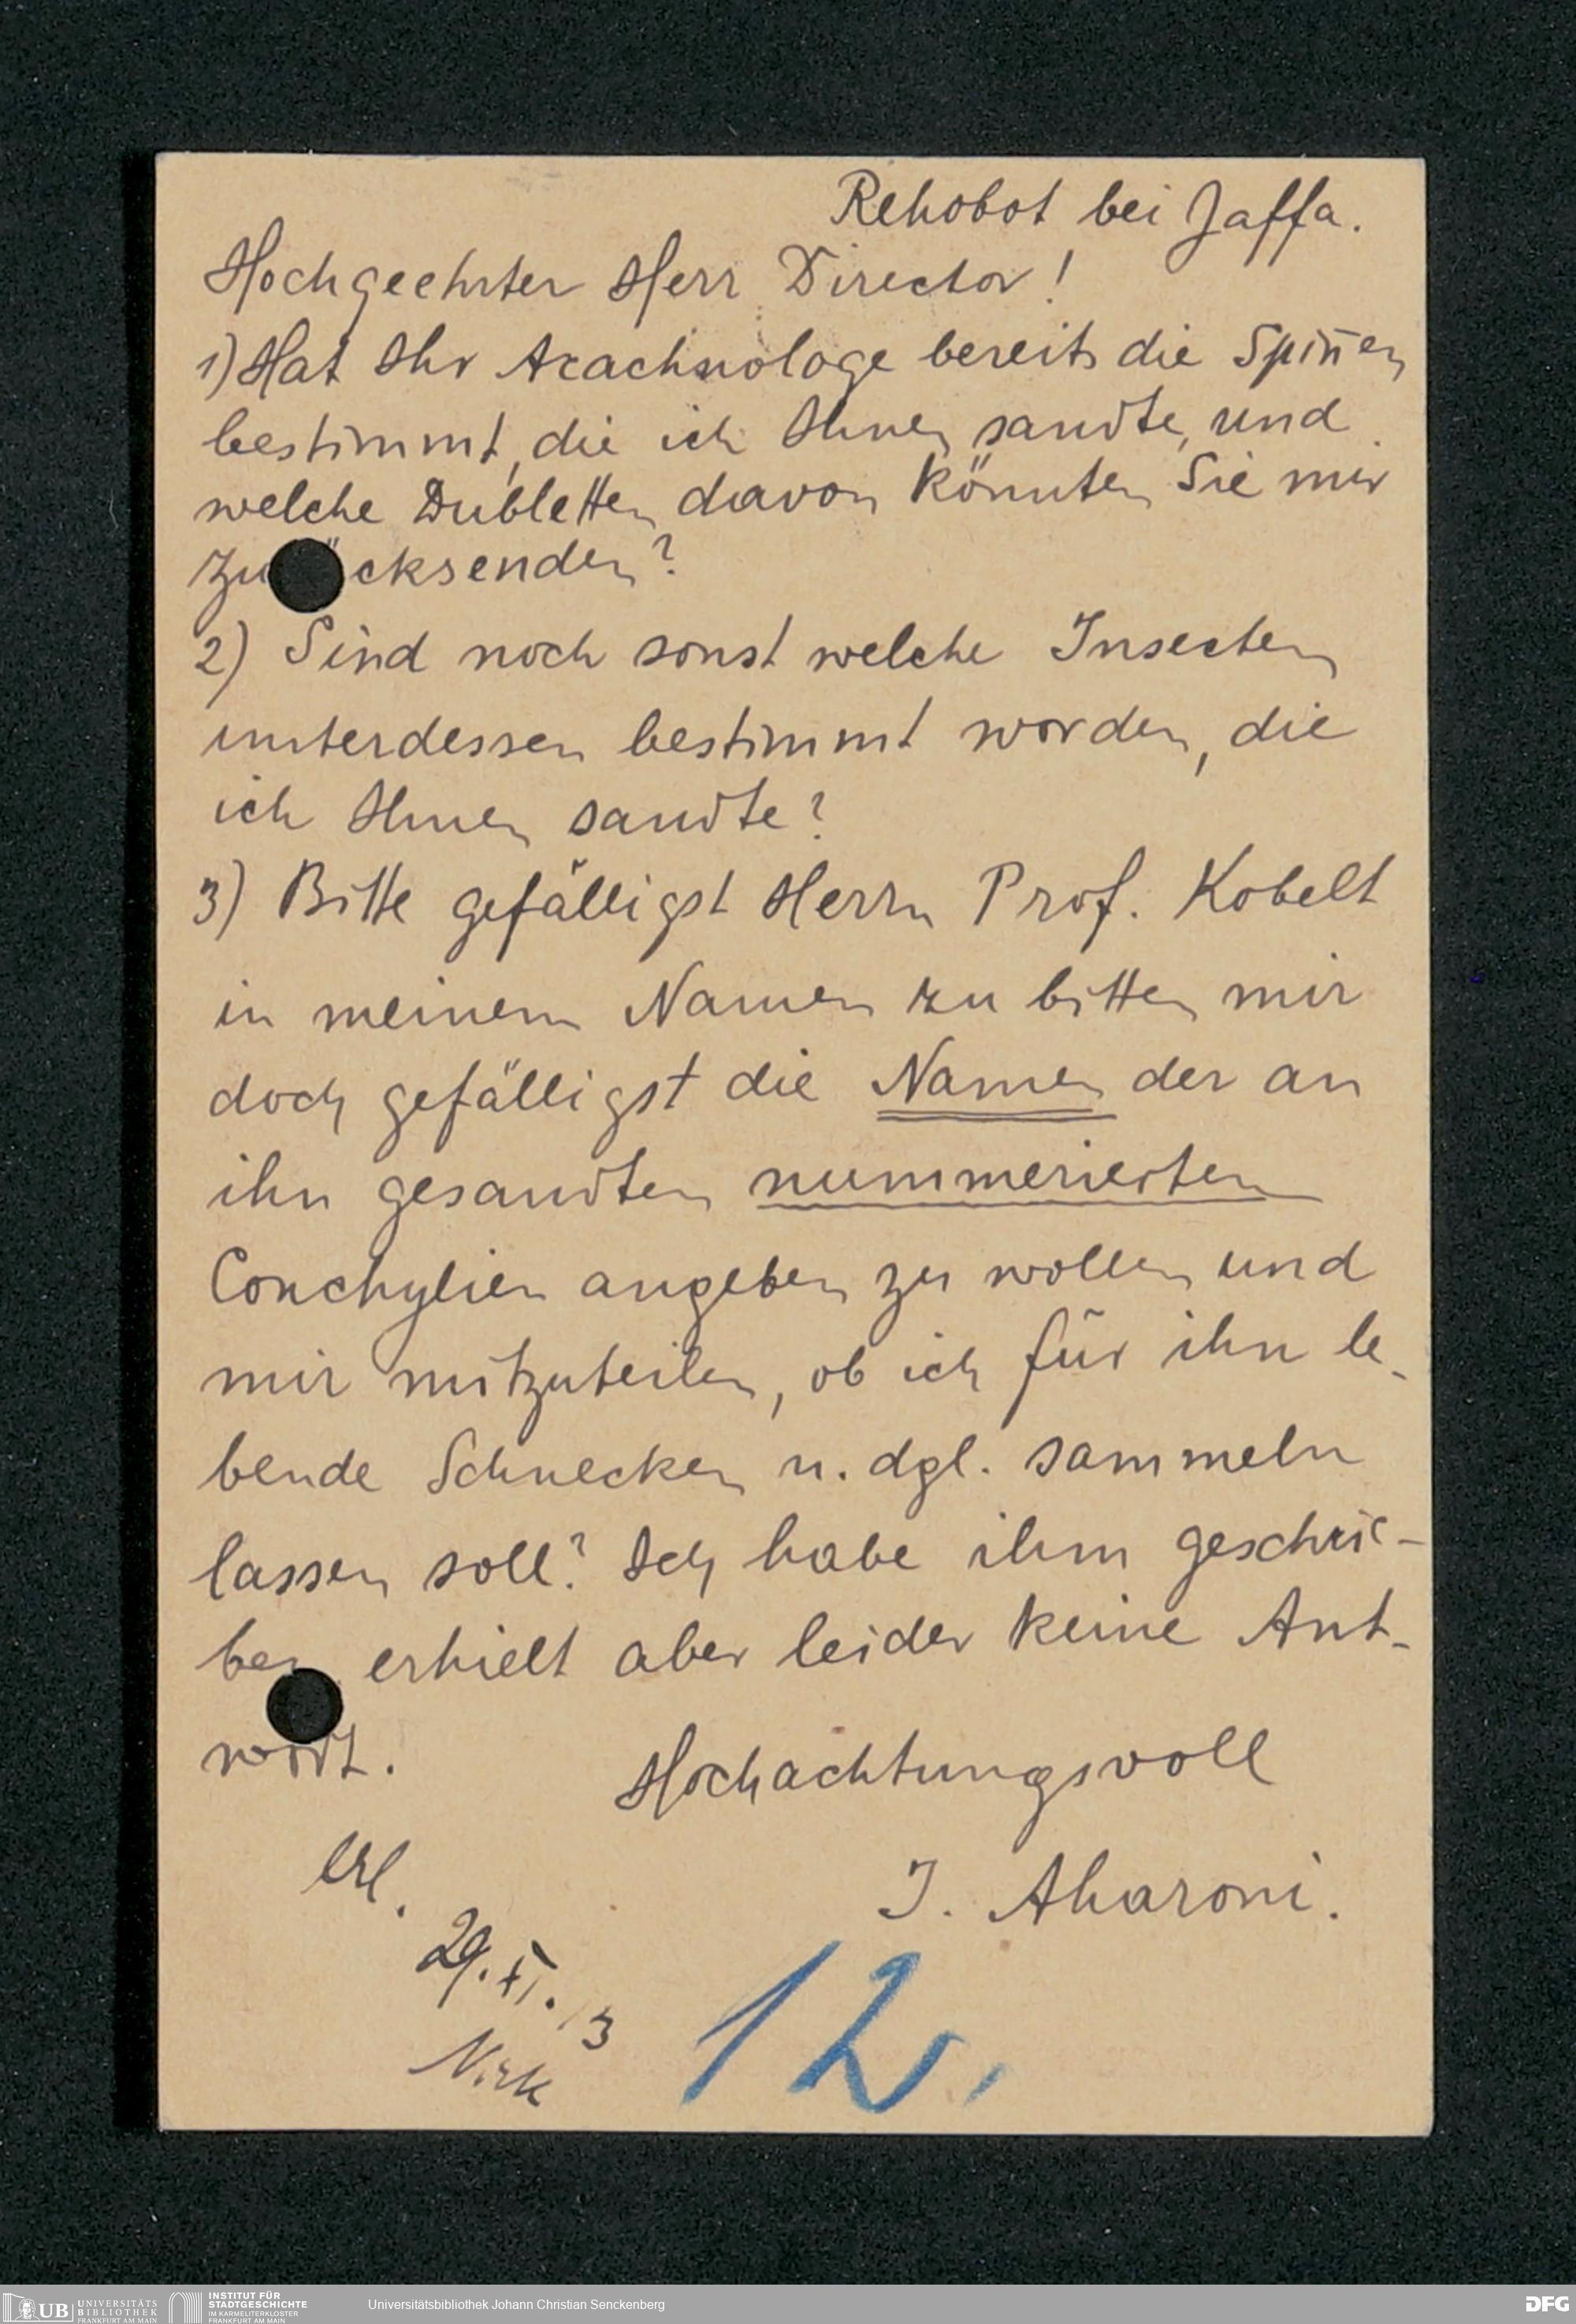 Rehobot bei Jaffa.
Hochgeehrter Herr Director!
1) Hat Ihr Arachnologe bereits die Spin̄en
bestimmt, die ich Ihnen sandte, und
welche Dubletten davon könnten Sie mir
zurücksenden?
2) Sind noch sonst welche Insecten
unterdessen bestimmt worden, die
ich Ihnen sandte?
3) Bitte gefälligst Herrn Prof. Kobelt
in meinem Namen zu bitten mir
doch gefälligst die Namen der an
ihn gesandten nummerierten
Conchylien angeben zu wollen und
mir mitzuteilen, ob ich für ihn le-
bende Schnecken u. dgl. sammeln
lassen soll? Ich habe ihm geschrie-
ben erhielt aber leider keine Ant-
wort.
Hochachtungsvoll
J. Aharoni.
erl.
29. XI. 13
12.
UB UNIVERSITÄTS
BIBLIOTHEK
FRANKFURT AM MAIN
INSTITUT FÜR
STADTGESCHICHTE
IM KARMELITERKLOSTER
FRANKFURT AM MAIN
Universitätsbibliothek Johann Christian Senckenberg
DFG